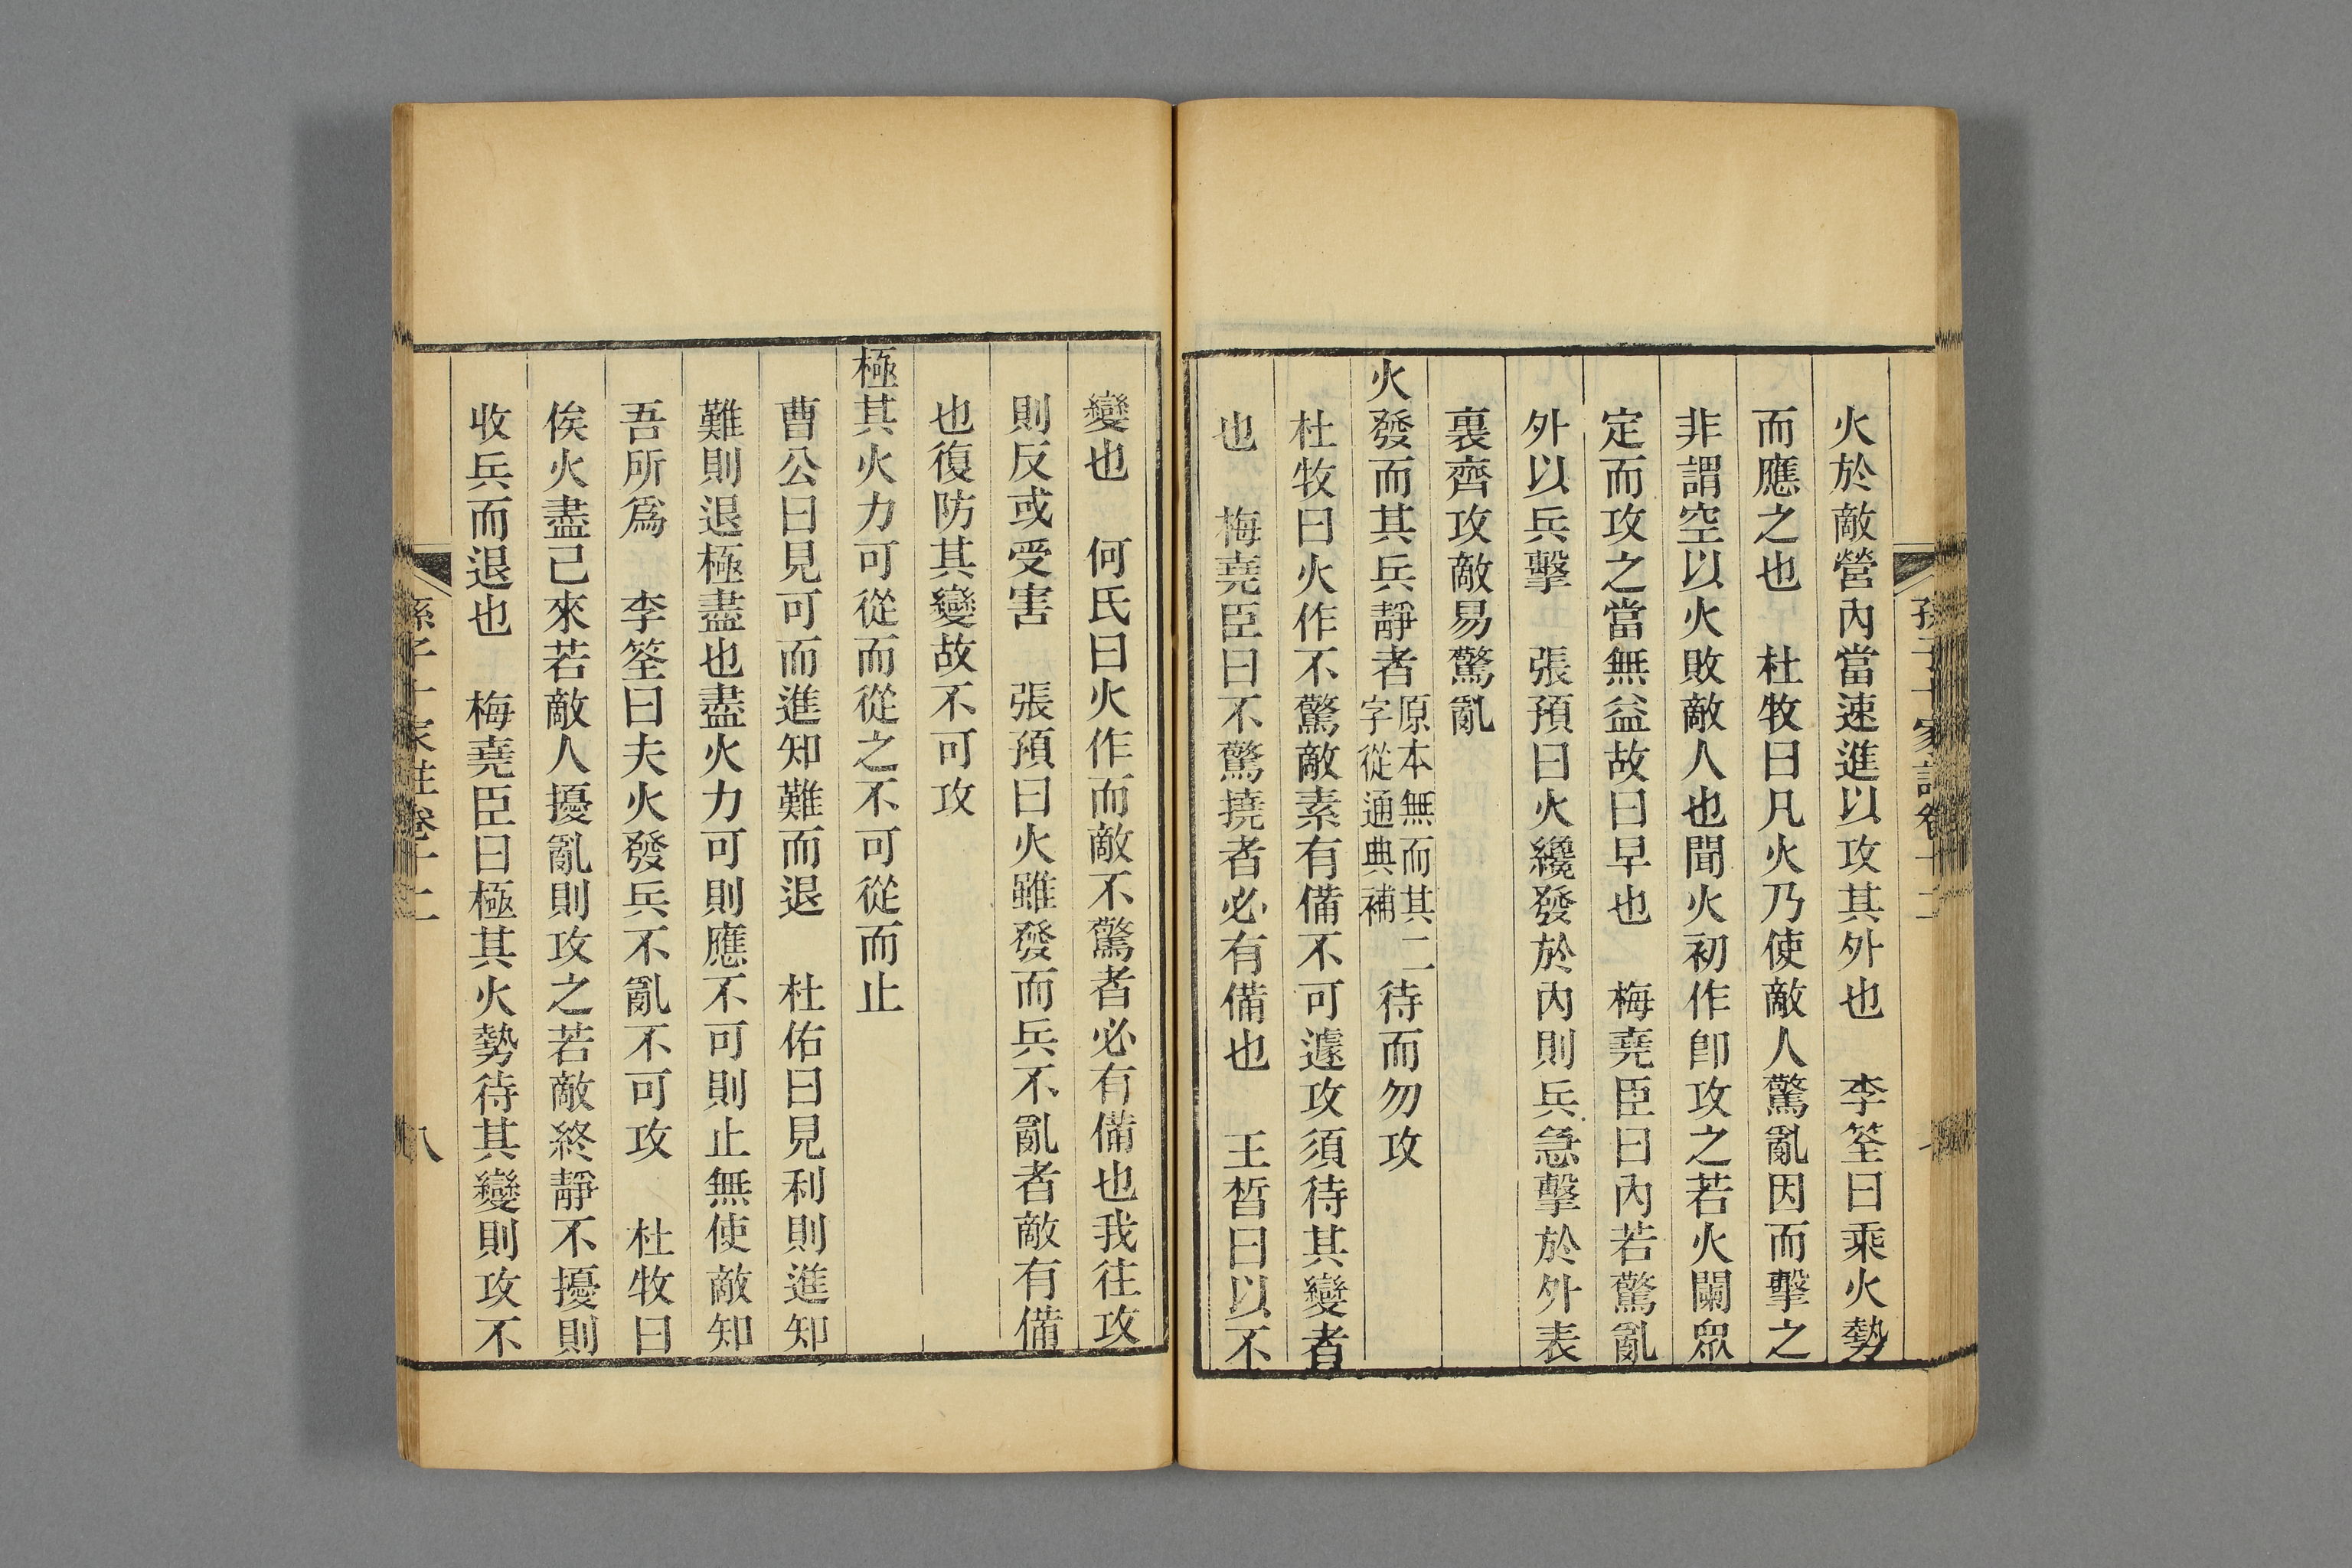 火於敵營內當速進以攻其外也　李筌曰乘火勢
而應之也　杜牧曰凡火乃使敵人驚亂因而擊之
非謂空以火敗敵人也聞火初作卽攻之若火闌眾
定而攻之當無益故曰早也　梅堯臣曰內若驚亂
外以兵擊　張預曰火纔發於內則兵急擊於外表
裏齊攻敵易驚亂
火發而其兵靜者原本無而其二字從通典補待而勿攻
杜牧曰火作不驚敵素有備不可遽攻須待其變者
也　梅堯臣曰不驚撓者必有備也　王晳曰以不
變也　何氏曰火作而敵不驚者必有備也我往攻
則反或受害　張預曰火雖發而兵不亂者敵有備
也復防其變故不可攻
極其火力可從而從之不可從而止
曹公曰見可而進知難而退　杜佑曰見利則進知
難則退極盡也盡火力可則應不可則止無使敵知
吾所爲　李筌曰夫火發兵不亂不可攻　杜牧曰
俟火盡已來若敵人擾亂則攻之若敵終靜不擾則
收兵而退也　梅堯臣曰極其火勢待其變則攻不
孫子十家註卷十二
八